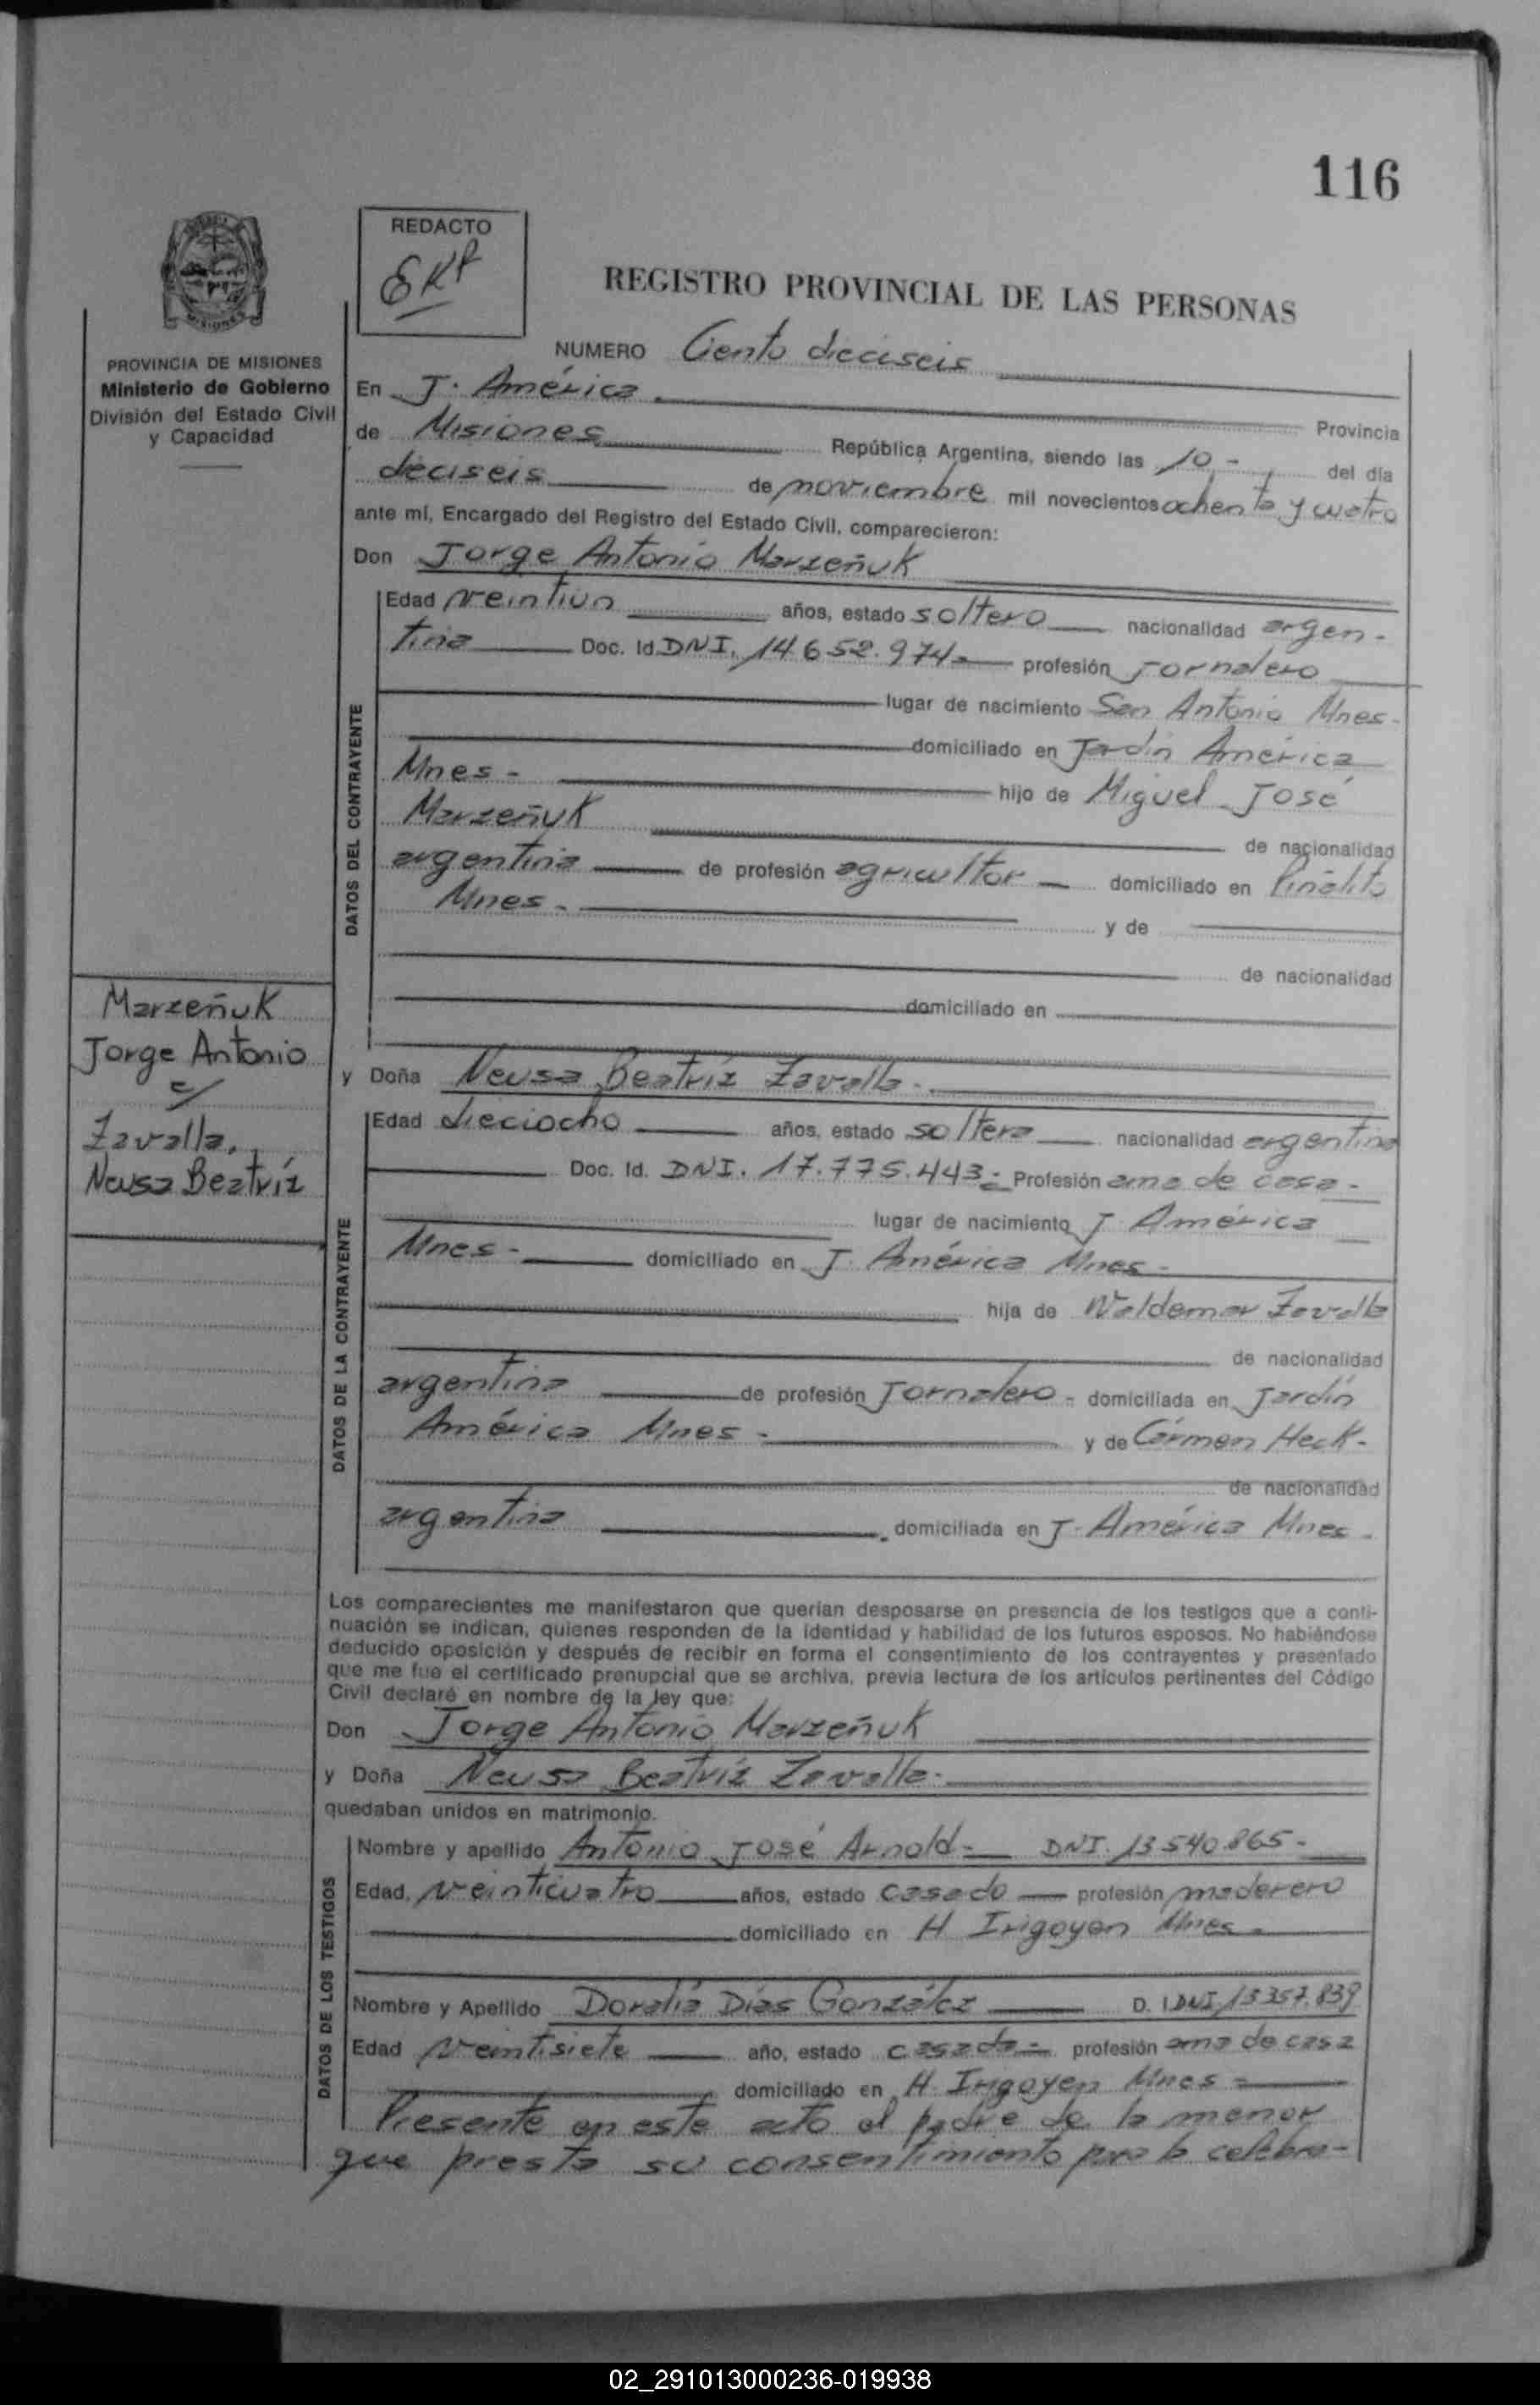 116
REDACTO
EKP
REGISTRO PROVINCIAL DE LAS PERSONAS
PROVINCIA DE MISIONES
Ministerio de Gobierno
División del Estado Civil
y Capacidad
NUMERO Ciento dieciseis
En J. América.
Provincia
de Misiones República Argentina, siendo las 10 - del día
dieciseis de noviembre mil novecientos ochenta y cuatro
ante mí, Encargado del Registro del Estado Civil, comparecieron:
Don Jorge Antonio Marzeñuk
DATOS DEL CONTRAYENTE
Edad veintiun años, estado soltero nacionalidad argen-
tina Doc. Id. DNI. 14.652.974- profesión Jornalero
lugar de nacimiento San Antonio Mnes-
domiciliado en Jardín América
Mnes - hijo de Miguel José
Marzeñuk
de nacionalidad
argentina de profesión agricultor domiciliado en Piñalito
Mnes - y de
de nacionalidad
domiciliado en
Marzeñuk
Jorge Antonio
c/
Zavalla,
Neusa Beatríz
y Doña Neusa Beatríz Zavalla-
DATOS DE LA CONTRAYENTE
Edad dieciocho años, estado soltera nacionalidad argentina
Doc. Id. DNI. 17.775.443- Profesión ama de casa -
lugar de nacimiento J América
Mnes - domiciliado en J. América Mnes -
hija de Waldemar Zavalla
de nacionalidad
argentina de profesión Jornalero - domiciliada en Jardín
América Mnes - y de Cármen Heck-
de nacionalidad
argentina domiciliada en J- América Mnes -
Los comparecientes me manifestaron que querían desposarse en presencia de los testigos que a conti-
nuación se indican, quienes responden de la identidad y habilidad de los futuros esposos. No habiéndose
deducido oposición y después de recibir en forma el consentimiento de los contrayentes y presentado
que me fue el certificado prenupcial que se archiva, previa lectura de los artículos pertinentes del Código
Civil declaré en nombre de la ley que:
Don Jorge Antonio Marzeñuk
y Doña Neusa Beatríz Zavalla-
quedaban unidos en matrimonio.
DATOS DE LOS TESTIGOS
Nombre y apellido Antonio José Arnold- DNI. 13.540.865-
Edad, veinticuatro años, estado casado profesión maderero
domiciliado en H Irigoyen Mnes -
Nombre y Apellido Doralia Días González D. I. DNI 13.357.839
Edad veintisiete año, estado casada- profesión ama de casa
domiciliado en H. Irigoyen Mnes -
Presente en este acto el padre de la menor
que presta su consentimiento para la celebra-
02_291013000236-019938